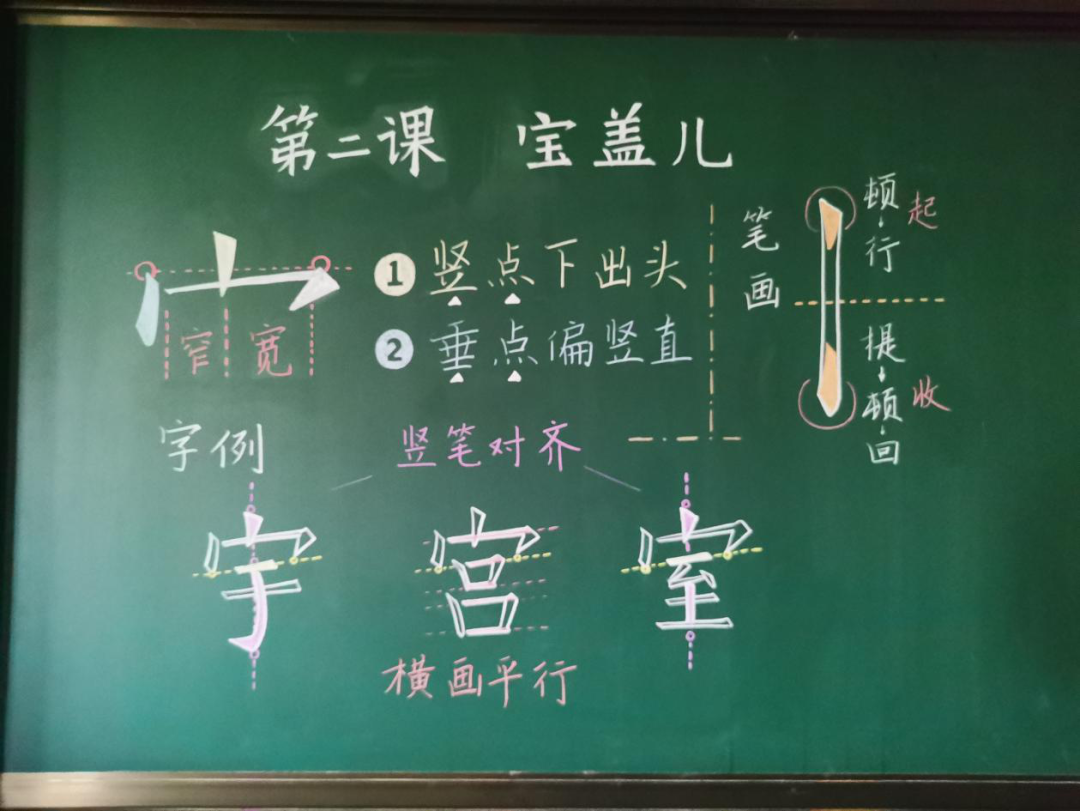 第二课 宝盖儿
窄 宽
1 竖点下出头
2 垂点偏竖直
笔画
顿行 起
提顿回 收
字例
竖笔对齐
宇 宫 室
横画平行